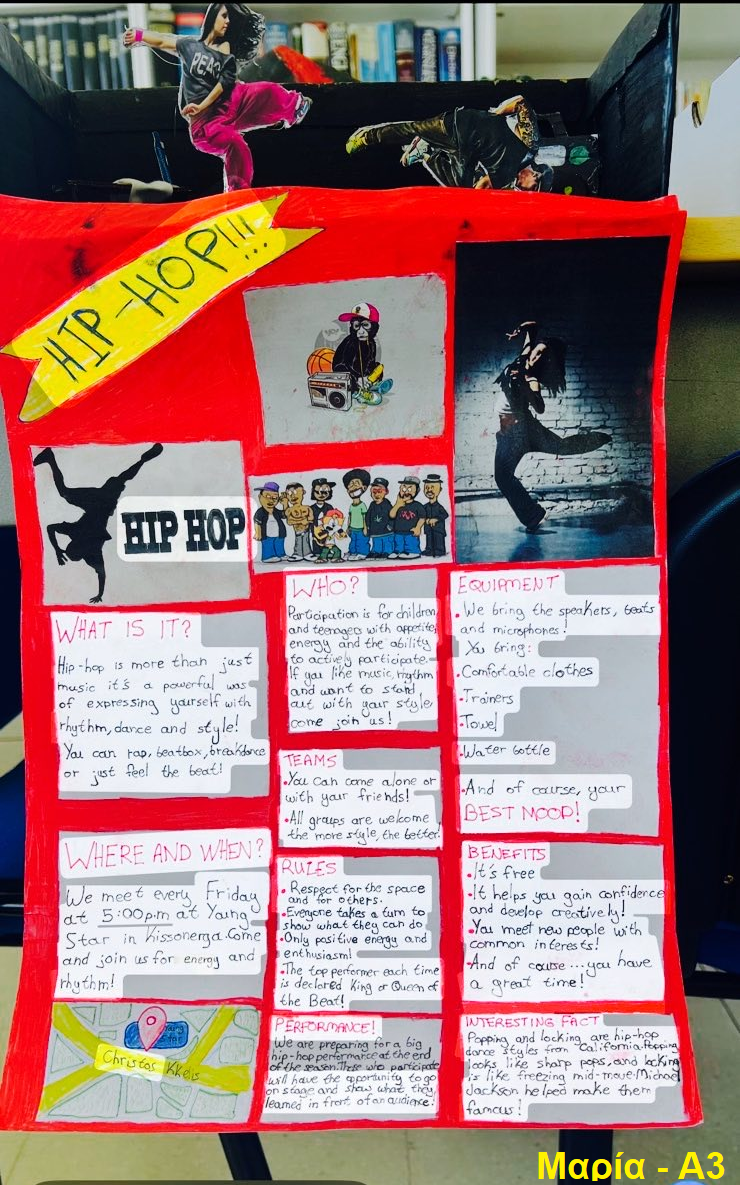 PEACE
HIP-HOP!!!
HIP HOP
WHAT IS IT?
Hip-hop is more than just
music it's a powerful was
of expressing yourself with
rhythm, dance and style!
You can rap, beatbox, breakdance
or just feel the beat!
WHERE AND WHEN?
We meet every Friday
at 5:00p.m at Yaung
Star in Kissonerga. Come
and join us for energy and
rhythm!
Yaung
Star
Christos Kkelis
WHO?
Participation is for children
and teenagers with appetite,
energy and the ability
to actively participate.
If you like music, rhythm
and want to stand
out with your style,
come join us!
TEAMS
•You can come alone or
with your friends!
•All groups are welcome
the more style, the better!
RULES
• Respect for the space
and for others.
•Everyone takes a turn to
show what they can do
•Only positive energy and
enthusiasm!
•The top performer each time
is declared King or Queen of
the Beat!
PERFORMANCE!
We are preparing for a big
hip-hop performance at the end
of the season. Those who participate
will have the opportunity to go
on stage and show what they
learned in front of an audience!
EQUIPMENT
• We bring the speakers, beats
and microphones!
You bring:
•Comfortable clothes
•Trainers
•Towel
•Water bottle
•And of course, your
BEST MOOD!
BENEFITS
•It's free
•It helps you gain confidence
and develop creatively!
•You meet new people with
common interests!
•And of course...you have
a great time!
INTERESTING FACT
Popping and locking are hip-hop
dance styles from California. Popping
looks like sharp pops, and locking
is like freezing mid-move. Michael
Jackson helped make them
famous!
Μαρία - Α3